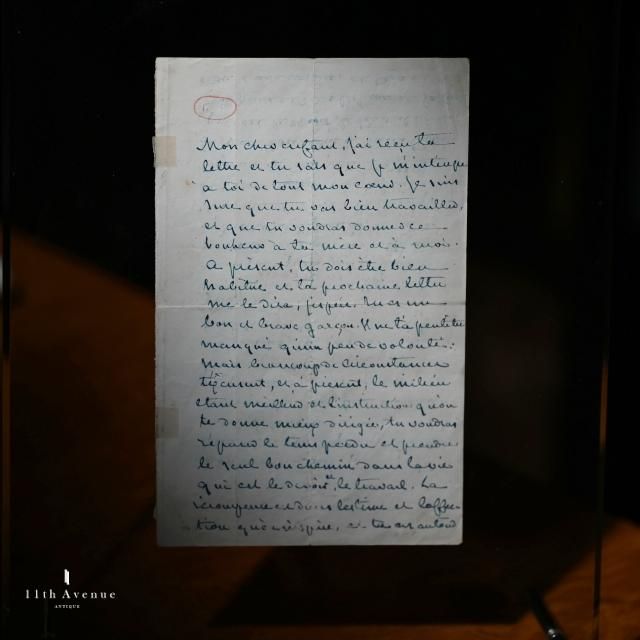 Mon cher enfant, j'ai reçu ta
lettre et tu sais que je m'intéresse
à toi de tout mon cœur. Je suis
sure que tu vas bien travailler,
et que tu voudras donner ce
bonheur à ta mère et à moi.
A présent, tu dois être bien
habitué et ta prochaine lettre
me le dira, j'espère. Tu es un
bon et brave garçon. Il ne t'a peut-être
manqué qu'un peu de volonté.
mais beaucoup de circonstances
t'excusent, et à présent, le milieu
étant meilleur et l'instruction qu'on
te donne mieux dirigée, tu voudras
réparer le temps perdu et prendre
le seul bon chemin dans la vie
qui est le devoir, le travail. La
récompense est dans l'estime et l'affec-
tion qu'on inspire, et tu as autour
11th Avenue
ANTIQUE